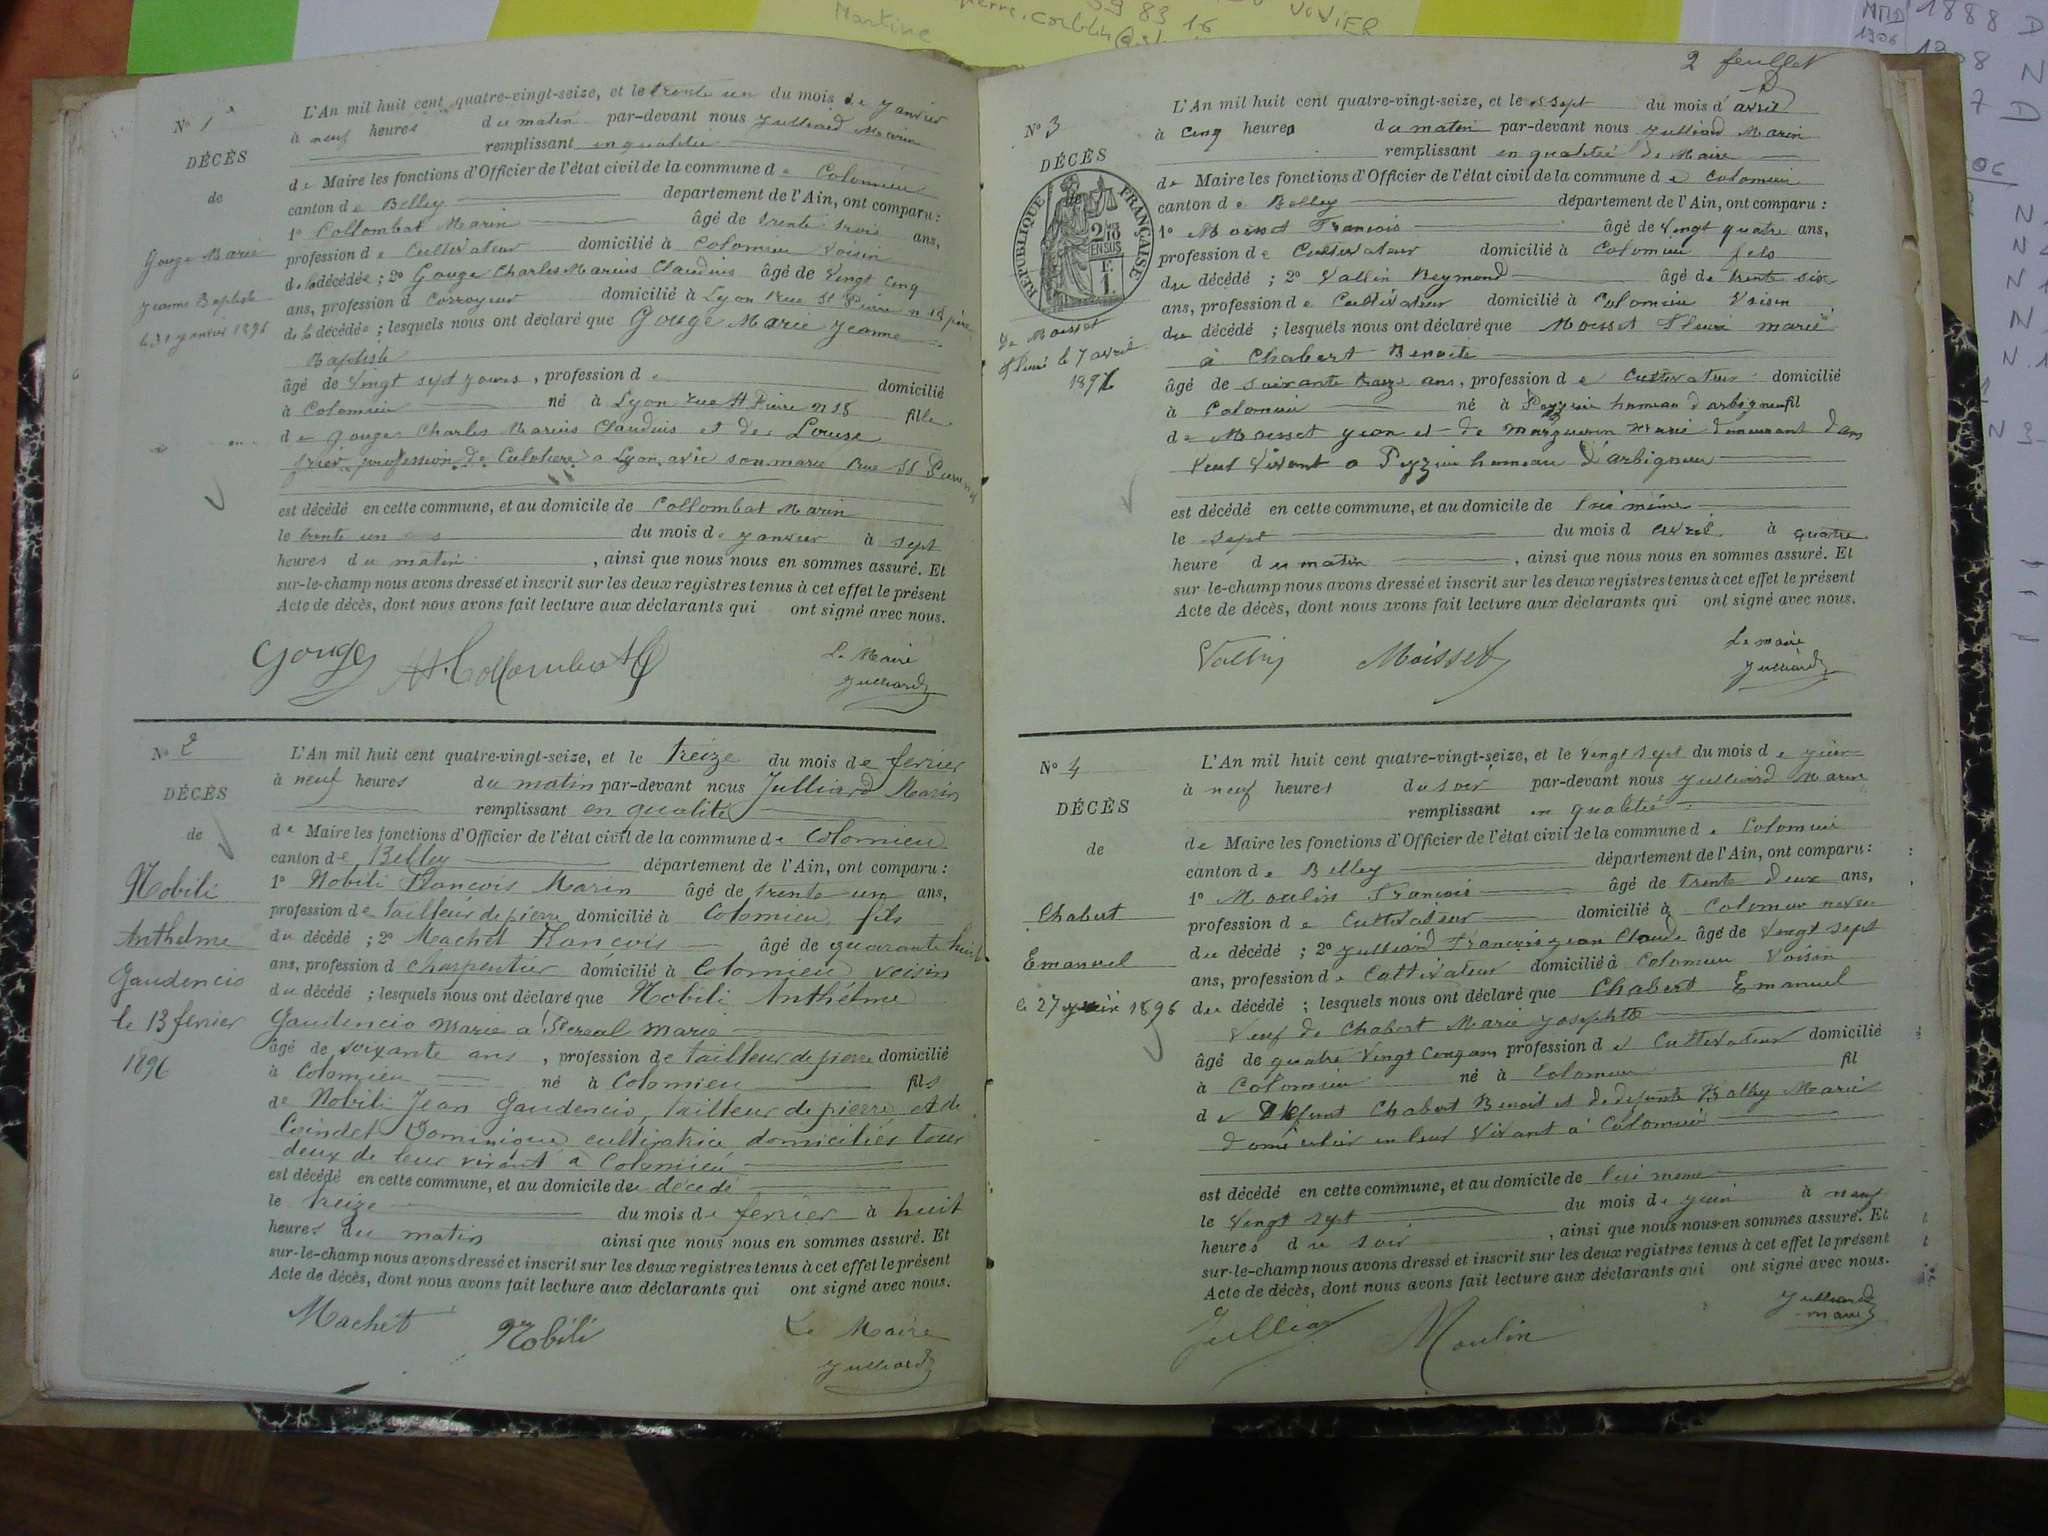 Martine
59 83 16
VIVIER
1888 D
2 feuillet
N° 1
DÉCÈS
de
Gouge Marie
Jeanne Baptiste
le 31 janvier 1896
L'An mil huit cent quatre-vingt-seize, et le trente un du mois de janvier
à neuf heures du matin par-devant nous Julliard Marin
remplissant en qualité
de Maire les fonctions d'Officier de l'état civil de la commune de Colomieu
canton de Belley département de l'Ain, ont comparu :
1° Collombat Marin âgé de trente trois ans,
profession de Cultivateur domicilié à Colomieu voisin
de la décédée ; 2° Gouge Charles Marius Claudius âgé de vingt cinq
ans, profession d Corroyeur domicilié à Lyon rue St Pierre n 18 père
de la décédée ; lesquels nous ont déclaré que Gouge Marie Jeanne
Baptiste
âgé de vingt sept jours, profession de domicilié
à Colomieu né à Lyon rue St Pierre n 18 fille
de Gouge Charles Marius Claudius et de Louise
profession de Culotière a Lyon avec son marie rue St Pierre
est décédé en cette commune, et au domicile de Collombat Marin
le trente un du mois de janvier à sept
heures du matin, ainsi que nous nous en sommes assuré. Et
sur-le-champ nous avons dressé et inscrit sur les deux registres tenus à cet effet le présent
Acte de décès, dont nous avons fait lecture aux déclarants qui ont signé avec nous.
Gouge Collombat Le Maire
Julliard
N° 2
DÉCÈS
de
Nobili
Anthelme
Gaudencio
le 13 fevrier
1896
L'An mil huit cent quatre-vingt-seize, et le treize du mois de fevrier
à neuf heures du matin par-devant nous Julliard Marin
remplissant en qualité
de Maire les fonctions d'Officier de l'état civil de la commune de Colomieu
canton de Belley département de l'Ain, ont comparu :
1° Nobili François Marin âgé de trente un ans,
profession de tailleur de pierre domicilié à Colomieu fils
du décédé ; 2° Machet François âgé de quarante huit
ans, profession d charpentier domicilié à Colomieu voisin
du décédé ; lesquels nous ont déclaré que Nobili Anthélme
Gaudencio marié à Marie
âgé de soixante ans, profession de tailleur de pierre domicilié
à Colomieu né à Colomieu fils
de Nobili Jean Gaudencio, tailleur de pierre et de
Coindet Dominique cultivatrice domiciliés tous
deux de leur vivant à Colomieu
est décédé en cette commune, et au domicile du décédé
le treize du mois de fevrier à huit
heures du matin ainsi que nous nous en sommes assuré. Et
sur-le-champ nous avons dressé et inscrit sur les deux registres tenus à cet effet le présent
Acte de décès, dont nous avons fait lecture aux déclarants qui ont signé avec nous.
Machet Nobili Le Maire
Julliard
N° 3
DÉCÈS
de
RÉPUBLIQUE FRANÇAISE
2/10 EN SUS
de Moisset
le 7 avril
1896
L'An mil huit cent quatre-vingt-seize, et le sept du mois d'avril
à cinq heures du matin par-devant nous Julliard Marin
remplissant en qualité de Maire
de Maire les fonctions d'Officier de l'état civil de la commune de Colomieu
canton de Belley département de l'Ain, ont comparu :
1° Moisset François âgé de vingt quatre ans,
profession de Cultivateur domicilié à Colomieu fils
du décédé ; 2° Vallin Reymond âgé de trente six
ans, profession de Cultivateur domicilié à Colomieu Voisin
du décédé ; lesquels nous ont déclaré que Moisset marié
à Chabert Benoite
âgé de soixante treize ans, profession de Cultivateur domicilié
à Colomieu né à Peyzieu hameau d'arbignieu fil
de Moisset jean et de Marguerin Marie demeurant dans
leur vivant a Peyzieu hameau d'arbignieu
est décédé en cette commune, et au domicile de lui même
le sept du mois d avril à quatre
heure du matin, ainsi que nous nous en sommes assuré. Et
sur-le-champ nous avons dressé et inscrit sur les deux registres tenus à cet effet le présent
Acte de décès, dont nous avons fait lecture aux déclarants qui ont signé avec nous.
Vallin Moisset Le maire
Julliard
N° 4
DÉCÈS
de
Chabert
Emanuel
le 27 juin 1896
L'An mil huit cent quatre-vingt-seize, et le vingt sept du mois de juin
à neuf heures du soir par-devant nous Julliard Marin
remplissant en qualité
de Maire les fonctions d'Officier de l'état civil de la commune de Colomieu
canton de Belley département de l'Ain, ont comparu :
1° Moulin François âgé de trente deux ans,
profession de Cultivateur domicilié à Colomieu neveu
du décédé ; 2° Julliard François jean Claude âgé de vingt sept
ans, profession de Cultivateur domicilié à Colomieu Voisin
du décédé ; lesquels nous ont déclaré que Chabert Emanuel
Veuf de Chabert Marie Josephte
âgé de quatre vingt cinq ans profession de Cultivateur domicilié
à Colomieu né à Colomieu fil
de Défunt Chabert Benoit et de défunte Marie
domicilier en leur vivant à Colomieu
est décédé en cette commune, et au domicile de lui meme
le vingt sept du mois de juin à neuf
heures du soir, ainsi que nous nous en sommes assuré. Et
sur-le-champ nous avons dressé et inscrit sur les deux registres tenus à cet effet le présent
Acte de décès, dont nous avons fait lecture aux déclarants qui ont signé avec nous.
Julliard Moulin Julliard
maire